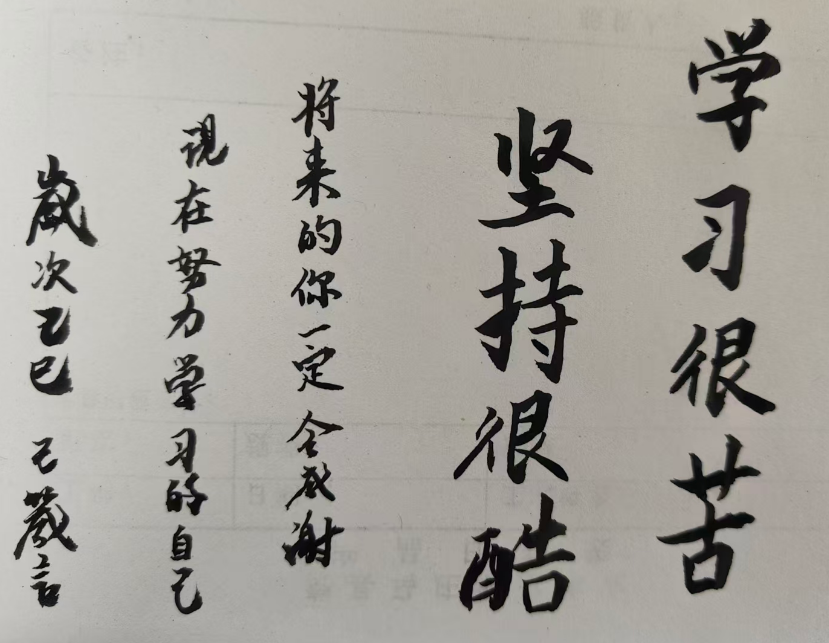 学习很苦
坚持很酷
将来的你一定会感谢
現在努力学习的自己
歲次乙巳 己箴言